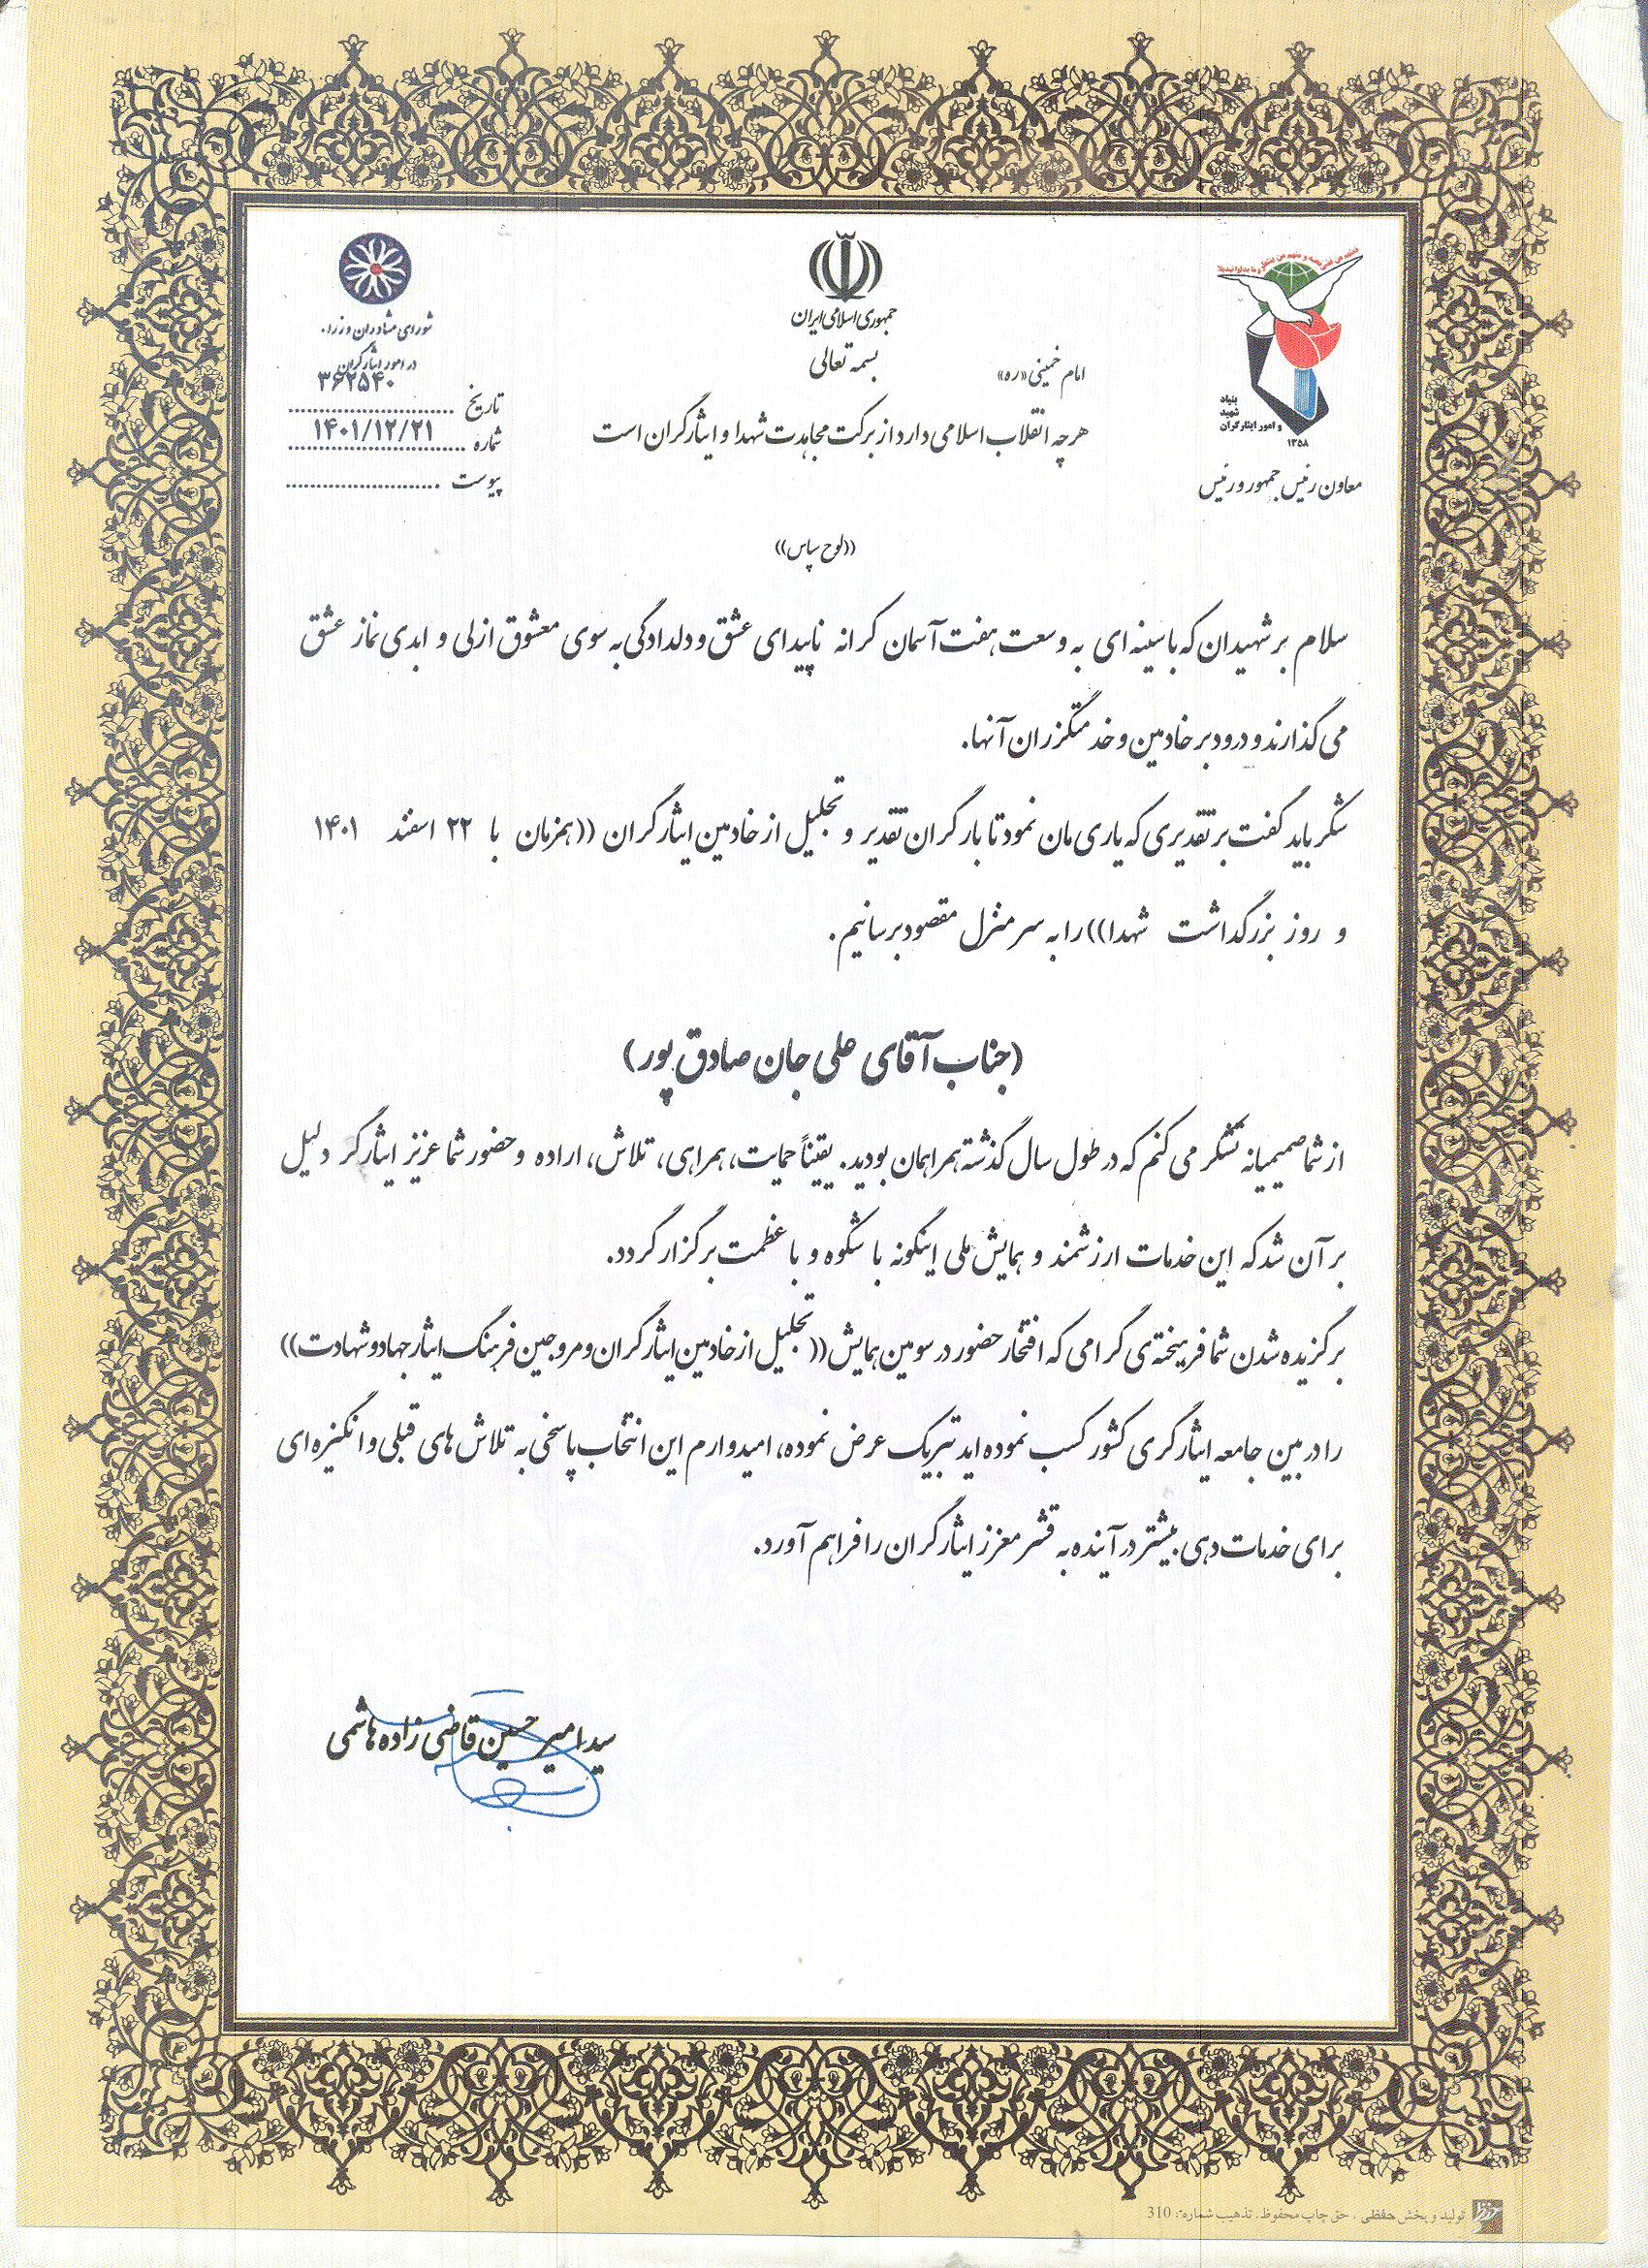 منهم من قضی نحبه و منهم من ینتظر و ما بدلوا تبدیلا
بنیاد
شهید
و امور ایثارگران
۱۳۵۸
معاون رئیس جمهور و رئیس
جمهوری اسلامی ایران
بسمه تعالی
امام خمینی «ره»
هرچه انقلاب اسلامی دارد از برکت مجاهدت شهدا و ایثارگران است
شورای مشاوران وزراء
در امور ایثارگران
۳۶۲۵۴۰
تاریخ ........................
۱۴۰۱/۱۲/۲۱
شماره ........................
پیوست ........................
((لوح سپاس))
سلام بر شهیدان که با سینه ای به وسعت هفت آسمان کرانه ناپیدای عشق و دلدادگی به سوی معشوق ازلی و ابدی نماز عشق
می گذارند و درود بر خادمین و خدمتگزران آنها.
شکر باید گفت بر تقدیری که یاری مان نمود تا بار گران تقدیر و تجلیل از خادمین ایثارگران ((همزمان با ۲۲ اسفند ۱۴۰۱
و روز بزرگداشت شهدا)) را به سر منزل مقصود برسانیم.
(جناب آقای علی جان صادق پور)
از شما صمیمیانه تشکر می کنم که در طول سال گذشته همراهمان بودید. یقیناً حمایت، همراهی، تلاش، اراده و حضور شما عزیز ایثارگر دلیل
بر آن شد که این خدمات ارزشمند و همایش ملی اینگونه با شکوه و با عظمت برگزار گردد.
برگزیده شدن شما فریخته ی گرامی که افتخار حضور در سومین همایش ((تجلیل از خادمین ایثارگران و مروجین فرهنگ ایثار جهاد و شهادت))
را در بین جامعه ایثارگری کشور کسب نموده اید تبریک عرض نموده، امیدوارم این انتخاب پاسخی به تلاش های قبلی و انگیزه ای
برای خدمات دهی بیشتر در آینده به قشر معزز ایثارگران را فراهم آورد.
سید امیر حسین قاضی زاده هاشمی
تولید و پخش حفظی . حق چاپ محفوظ. تذهیب شماره: 310